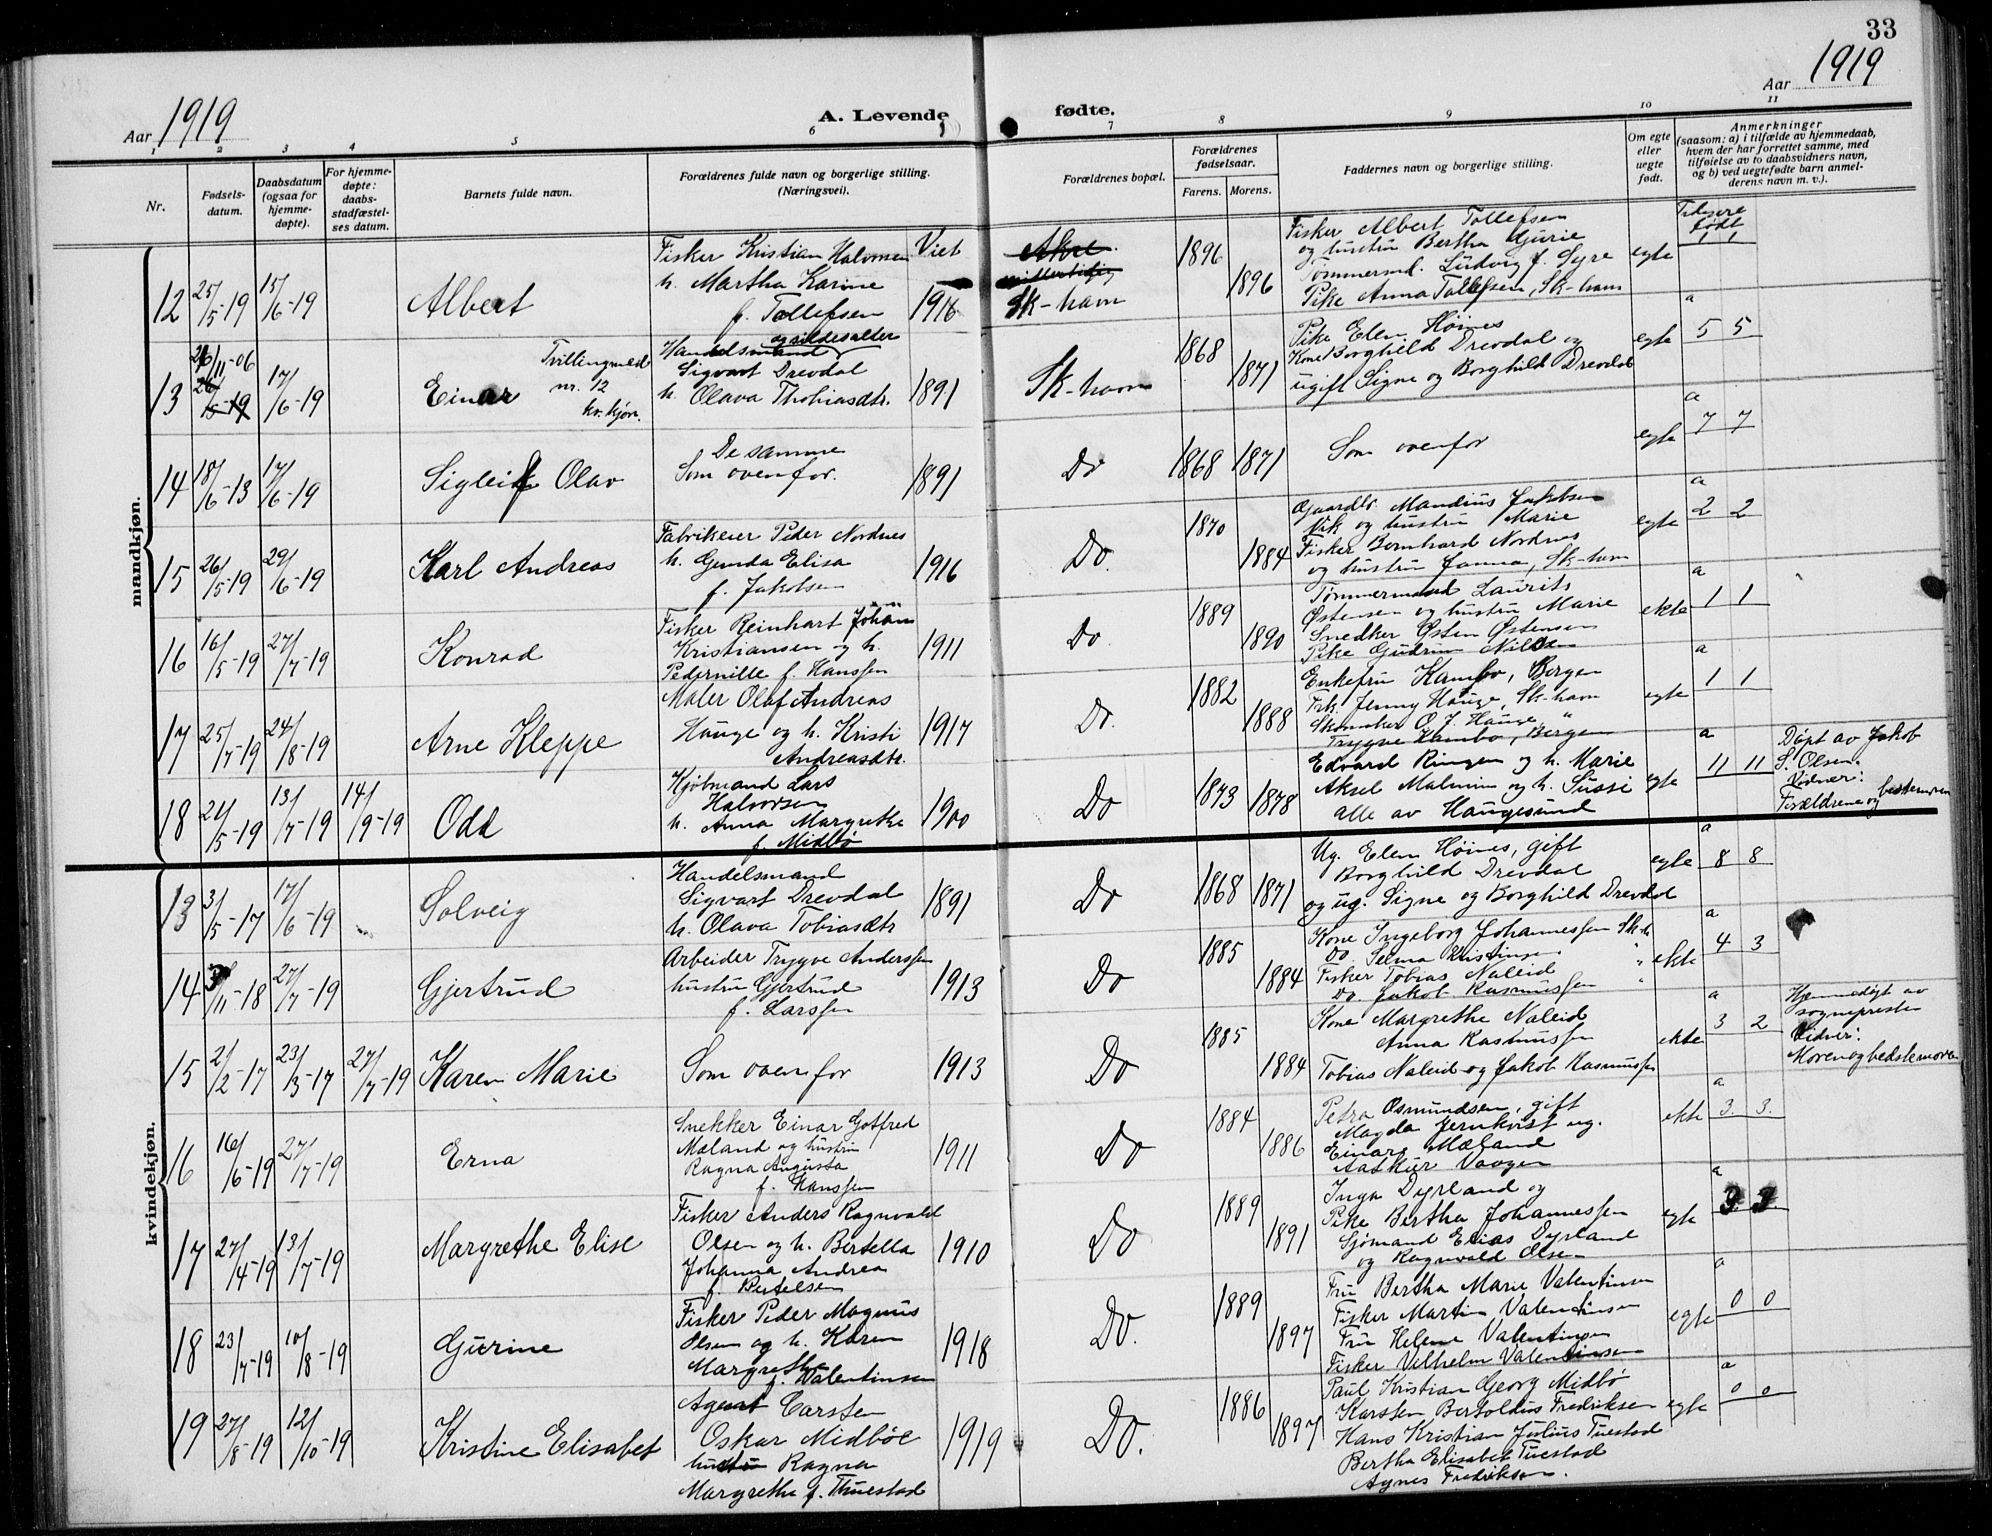 33
Aar 1919
A. Levende fødte.
Aar 1919
1 2 3 4 5 6 7 8 9 10 11
Nr.
Fødsels-
datum.
Daabsdatum
(ogsaa for
hjemme-
døpte).
For hjemme-
døpte:
daabs-
stadfæstel-
ses datum.
Barnets fulde navn.
Forældrenes fulde navn og borgerlige stilling.
(Næringsvei).
Forældrenes bopæl.
Forældrenes
fødselsaar.
Farens. Morens.
Faddernes navn og borgerlige stilling.
Om egte
eller
uegte
født.
Anmerkninger
(saasom: a) i tilfælde av hjemmedaab,
hvem der har forrettet samme, med
tilføielse av to daabsvidners navn,
og b) ved uegtefødte barn anmel-
derens navn m. v.).
Viet
Tidligere
født
mandkjøn.
12 25/5-19 15/6-19 Albert
Fisker Kristian Halvorsen
h. Martha Karine
f. Tollefsen
1916
Akre
midlertidig
Sk-havn
1896 1896
Fisker Albert Tollefsen
og hustru Bertha Gurie
Tømmermd. Ludvig f. Syre
Pike Anna Tollefsen, Sk-havn
egte 1 1
13 26/11-06 17/6-19 Einar
Tvilling med
nr. 12
kv. kjøn.
Handelsmand og sildesalter
Sigvart Drevdal
h. Olava Thobiasdtr.
1891 Sk-havn 1868 1871
Pike Elen Høines
Kone Borghild Drevdal og
ugift Signe og Borghild Drevdal
egte a 5 5
14 18/6-13 17/6-19 Sigleif Olav
De samme
Som ovenfor.
1891 Do 1868 1871
Som ovenfor
egte a 7 7
15 26/5-19 29/6-19 Karl Andreas
Fabrikeier Peder Nordnes
h. Gunda Elisa
f. Jakobsen
1916 Do. 1870 1884
Gaardbr. Mandius Jakobsen
Vik og hustru Marie
Fisker Bernhard Nordnes
og hustru Janna, Sk-havn
egte a 2 2
16 16/5-19 27/7-19 Konrad
Fisker Reinhart Johan
Kristiansen og h.
Pedernille f. Hanssen
1911 Do. 1889 1890
Tømmermand Laurits
Østensen og hustru Marie
Snedker Østen Østensen
Pike Gudrun Nilsen
ekte a 1 1
17 25/7-19 24/8-19 Arne Kleppe
Maler Olaf Andreas
Hauge og h. Kristi
Andreasdtr.
1917 Do. 1882 1888
Enkefru Kambo, Bergen
Frk. Jenny Hauge, Sk-havn
O. J. Hauge "
Trygve Kambo, Bergen
egte a 1 1
18 21/5-19 13/7-19 14/9-19 Odd
Kjøbmand Lars
Halvorsen
h. Anna Margrethe
f. Midbø
1900 Do 1873 1878
Edvard Ringen og h. Marie
Aksel Malmin og h. Sussi
alle av Haugesund
egte a 11 11
Døpt av Jakob
S. Olsen.
Vidner:
Forældrene og bestemoren
kvindekjøn.
13 3/5-17 17/6-19 Solveig
Handelsmand
Sigvart Drevdal
h. Olava Tobiasdtr
1891 Do 1868 1871
Ug. Elen Høines, gift
Borghild Drevdal
og ug. Signe og Borghild Drevdal
egte a 8 8
14 3/11-18 27/7-19 Gjertrud
Arbeider Trygve Anderssen
hustru Gjertrud
f. Larssen
1913 Do 1885 1884
Kone Ingeborg Johannessen Sk-h
Do. Selma Kristinsen "
Fisker Tobias Naleid "
Do. Jakob Rasmussen "
ekte a 4 3
15 2/2-17 23/3-17 27/7-19 Karen Marie
Som ovenfor
1913 Do 1885 1884
Kone Margrethe Naleid
Anna Rasmussen
Tobias Naleid og Jakob Rasmussen
ekte a 3 2
Hjemmedøpt av
sognepresten
Vidner:
Moren og bedstemoren
16 16/6-19 27/7-19 Erna
Snekker Einar Gotfred
Mæland og hustru
Ragna Augusta
f. Hanssen
1911 Do 1884 1886
Petra Osmundsen, gift
Magda Jernkvist ug.
Einar Mæland
Vaagen
ekte a 3. 3.
17 27/4-19 13/7-19 Margrethe Elise
Fisker Anders Ragnvald
Olsen og h. Bertella
Johanna Andrea
f. Bertelsen
1910 Do 1889 1891
Inga Dyrland og
Pike Bertha Johannessen
Sjømand Elias Dyrland
og Ragnvald Olsen
egte a 3 3
18 23/7-19 10/8-19 Gurine
Fisker Peder Magnus
Olsen og h. Karen
Margrethe
f. Valentinsen
1918 Do. 1889 1897
Fru Bertha Marie Valentinsen
Fisker Martin Valentinsen
Fru Helene Valentinsen
Fisker Vilhelm Valentinsen
egte a 0 0
19 27/8-19 12/10-19 Kristine Elisabet
Agent Carsten
Oskar Midbøe
hustru Ragna
Margrethe f. Thuestad
1919 Do. 1886 1897
Paul Kristian Georg Midbø
Karsten Bertoldus Fredriksen
Hans Kristian Julius Tuestad
Bertha Elisabet Tuestad
Agnes Fredriksen.
egte a 0 0